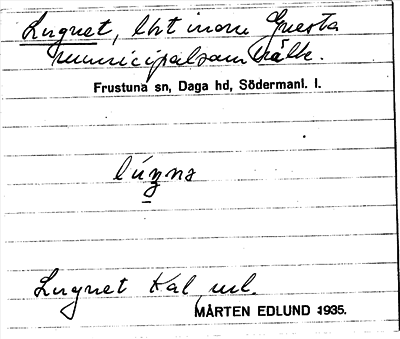 Lugnet, lht inom Gnesta
municipalsamhälle.
Frustuna sn, Daga hd, Södermanl. l.
Lugnet Kal, ml.
MÅRTEN EDLUND 1935.